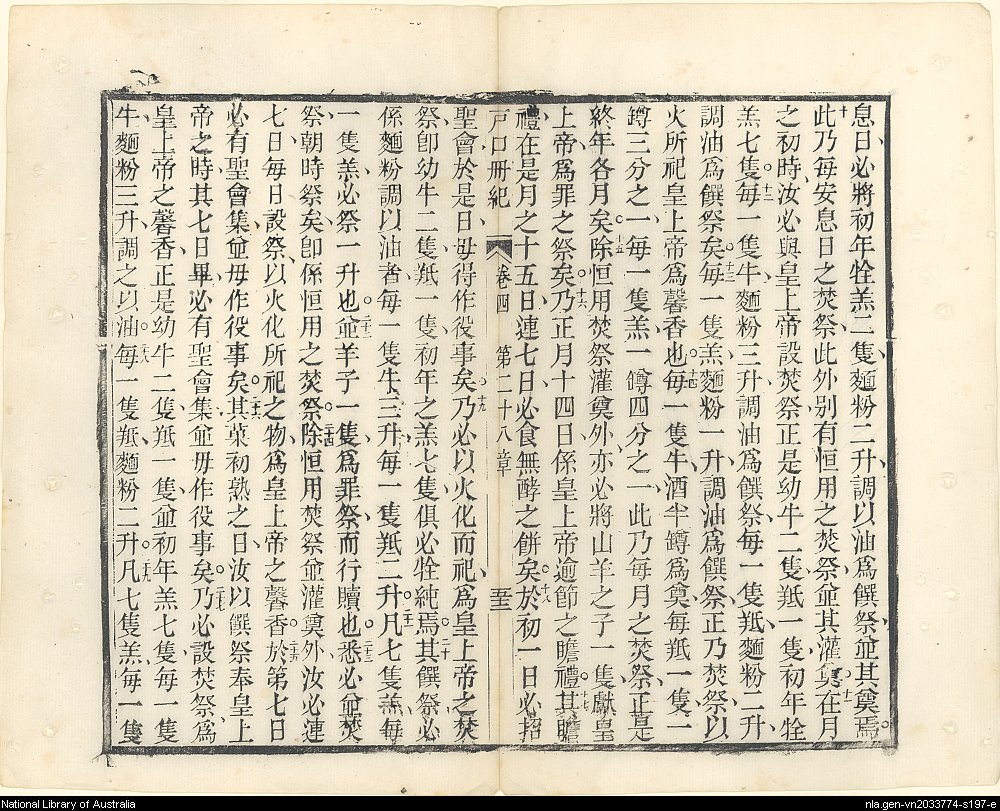 息日必將初年牷羔二隻麵粉二升調以油爲饌祭並其奠焉。
十此乃每安息日之焚祭此外别有恒用之焚祭、並其灌奠。十一在月
之初時汝必與皇上帝設焚祭、正是幼牛二隻、羝一隻、初年牷
羔七隻。十二每一隻牛、麵粉三升調油爲饌祭、每一隻羝、麵粉二升
調油爲饌祭矣。十三每一隻羔、麵粉一升、調油爲饌祭、正乃焚祭、以
火所祀皇上帝爲馨香也。十四每一隻牛、酒半罇爲奠、每羝一隻、二
罇三分之一、每一隻羔一罇四分之一、此乃每月之焚祭、正是
終年各月矣。十五除恒用焚祭灌奠外、亦必將山羊之子一隻、獻皇
上帝爲罪之祭矣。十六乃正月十四日、係皇上帝逾節之瞻禮。十七其瞻
禮在是月之十五日、連七日必食無酵之餅矣。十八於初一日必招
戶口册紀 卷四 第二十八章
聖會、於是日毋得作役事矣。十九乃必以火化而祀、爲皇上帝之焚
祭、卽幼牛二隻、羝一隻、初年之羔七隻、俱必牷純焉。二十其饌祭必
係麵粉調以油者、每一隻牛、三升、每一隻羝二升。二十一凡七隻羔、每
一隻羔、必祭一升也。二十二並羊子一隻、爲罪祭而行贖也。二十三悉必並焚
祭朝時祭矣、卽係恒用之焚祭。二十四除恒用焚祭並灌奠外、汝必連
七日、每日設祭、以火化所祀之物、爲皇上帝之馨香。二十五於第七日
必有聖會集、並毋作役事矣。二十六其菓初熟之日、汝以饌祭奉皇上
帝之時、其七日畢、必有聖會集、並毋作役事矣。二十七乃必設焚祭、爲
皇上帝之馨香、正是幼牛二隻、羝一隻、並初年羔七隻、每一隻
牛、麵粉三升、調之以油。二十八每一隻羝、麵粉二升。二十九凡七隻羔、每一隻
National Library of Australia
nla.gen-vn2033774-s197-e